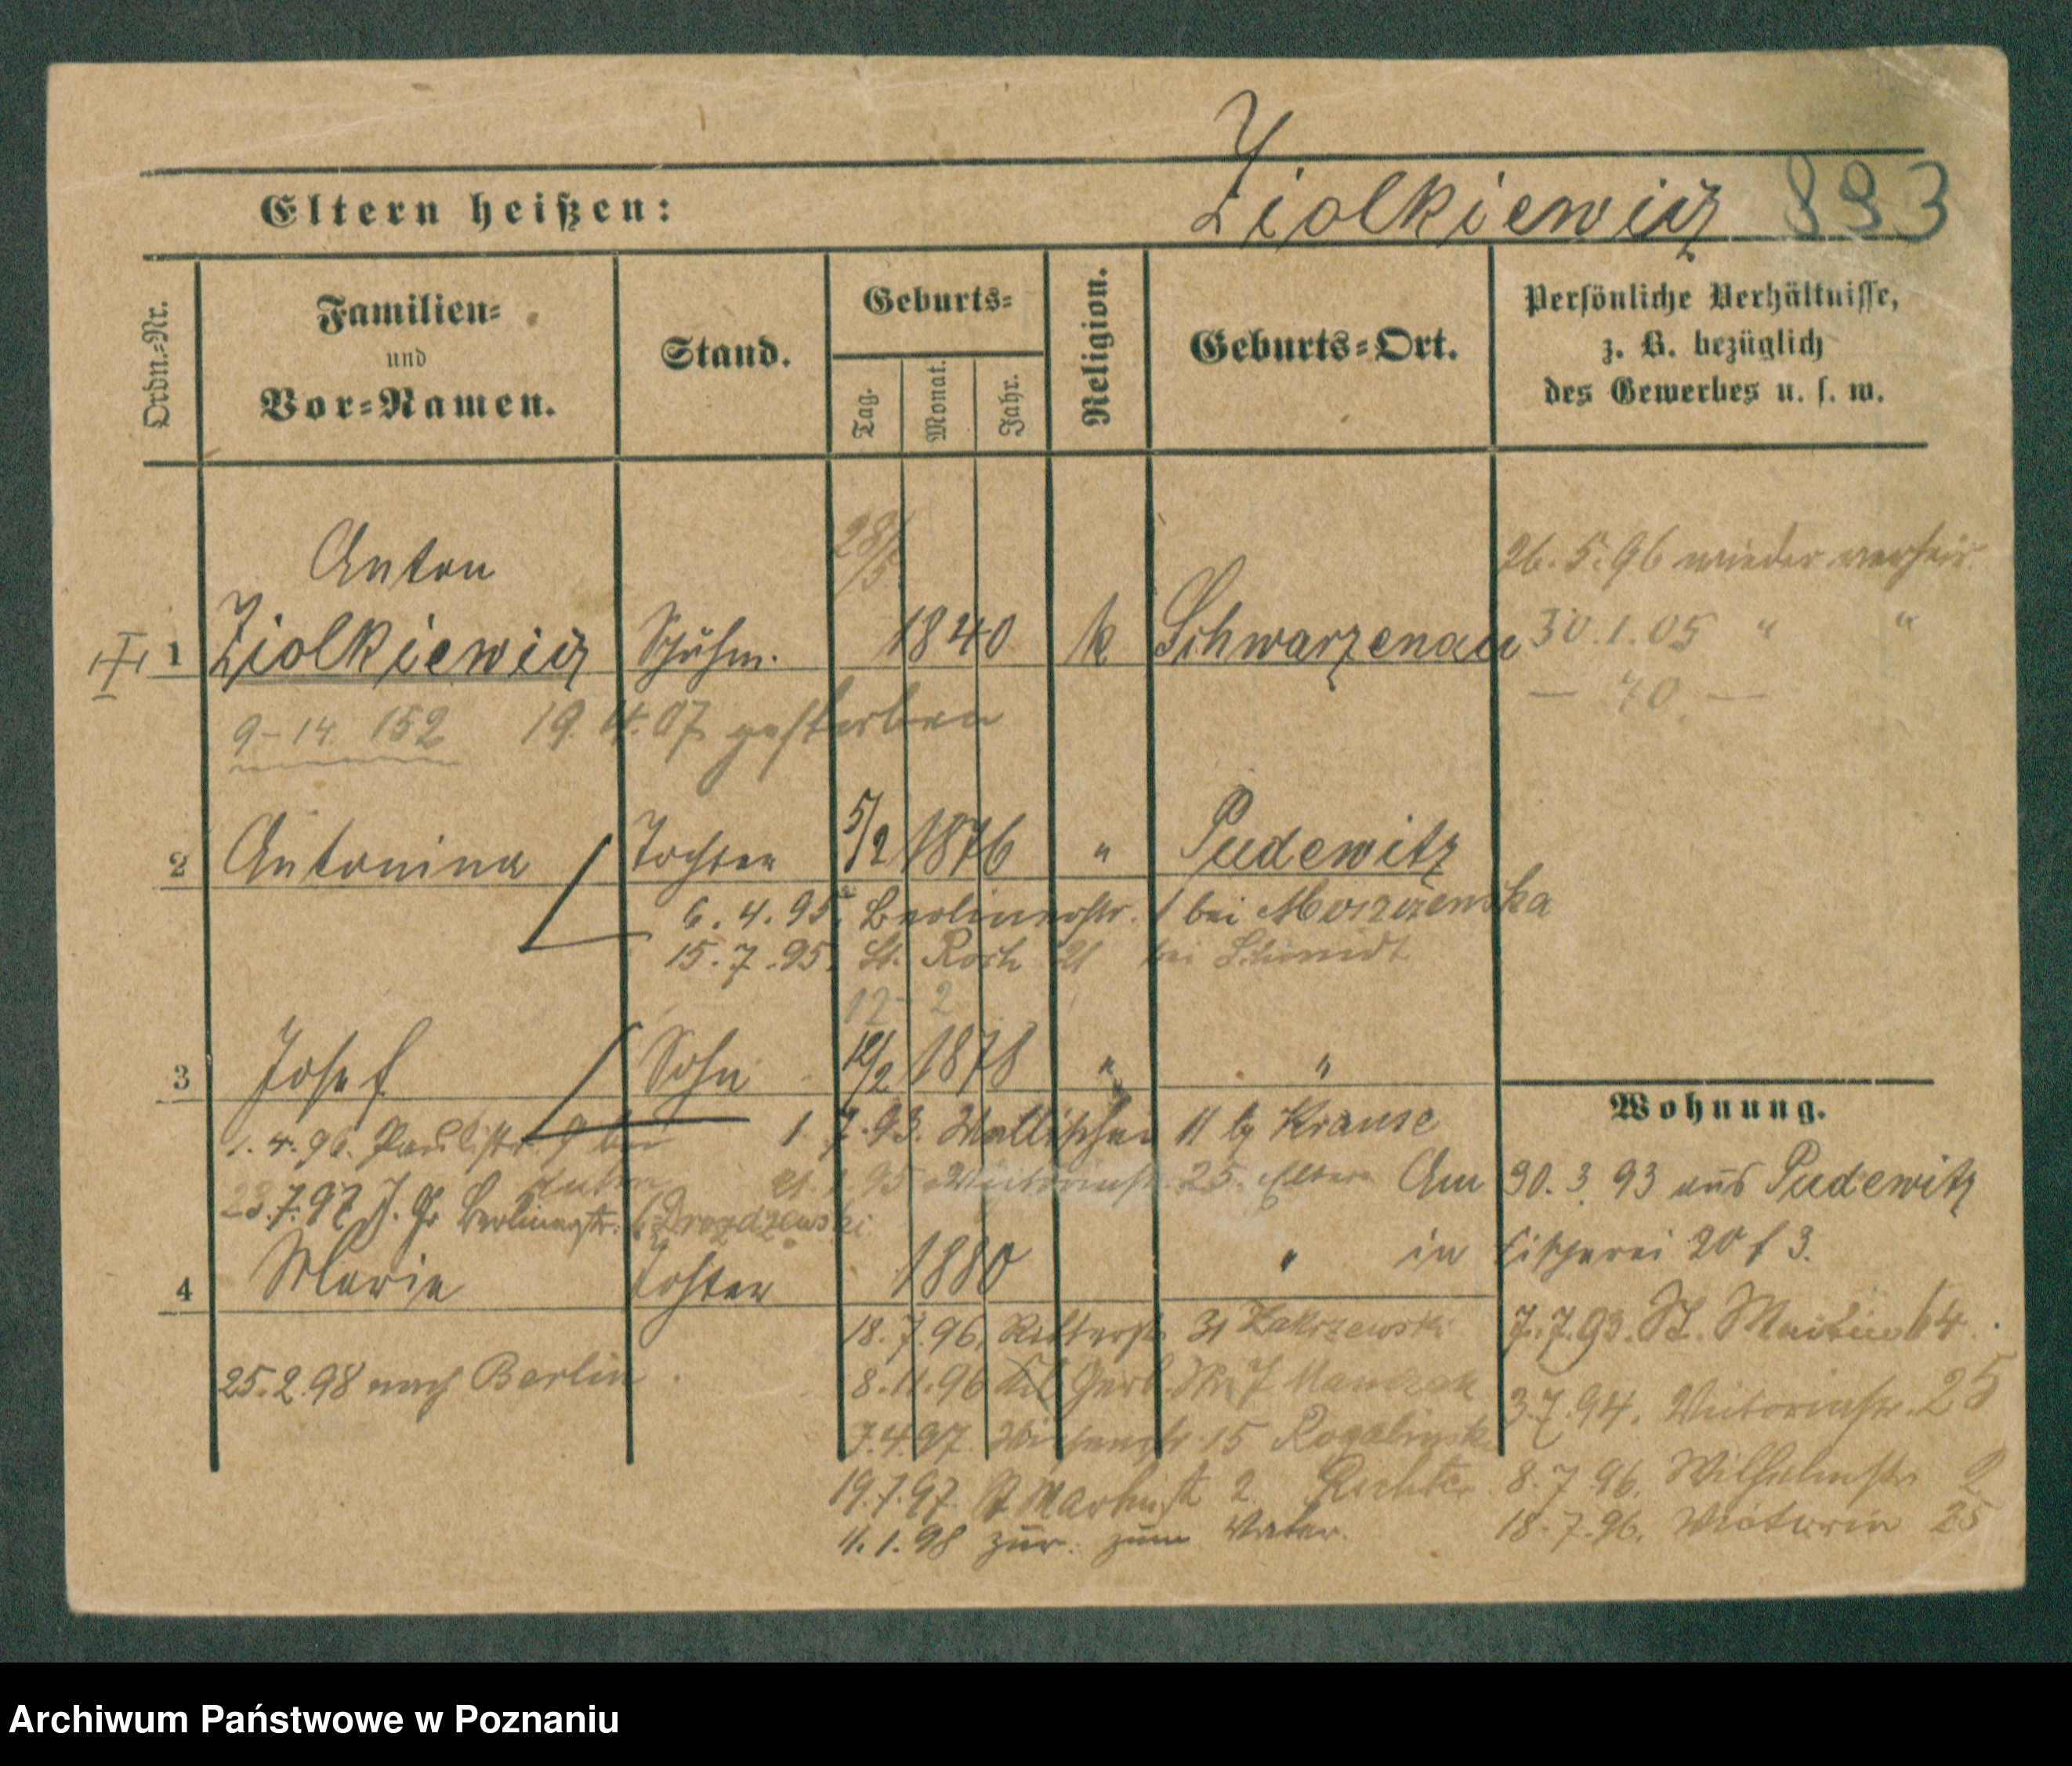 Ziolkiewicz 893
Eltern heißen:
Ordn.-Nr.
Familien-
und
Vor-Namen.
Stand.
Geburts-
Tag.
Monat.
Jahr.
Religion.
Geburts-Ort.
Persönliche Verhältnisse,
z. B. bezüglich
des Gewerbes u. s. w.
Anton 28/5 26.5.96 wieder verheir.
1 Ziolkiewicz Schuhm. 1840 k Schwarzenau 30.1.05 " "
— 40. —
9-14. 152 19. 4. 07 gestorben
2 Antonina Tochter 5/2 1876 " Pudewitz
6.4.95. Berlinerstr. 1 bei
15.7.95. St. Roch 21 bei Schmidt
12 2
3 Josef Sohn 12/2 1878 " "
Wohnung.
1.4.96. Paulistr. 9 bei
1.7.93. Wallischei 11 bg Krause
95 Victoriastr. 25. Eltern
Am 30.3.93 aus Pudewitz
23.7.97 Berlinerstr. 6 Drozdzewski
in Fischerei 20 f 3.
4 Marie Tochter 1880 "
18.7.96. Ritterstr. 31 Zakrzewski
7.7.93. St. Martin 64.
25.2.98 nach Berlin.
8.11.96 Gerb. Str. 7
3.7.94. Victoriastr. 25
7.4.97. 15 Rogalinski
8.7.96. Wilhelmstr. 2
19.7.97. St Martinst 2 Richter
18.7.96. Victoria 25
11.1.98 zur. zum Vater.
Archiwum Państwowe w Poznaniu